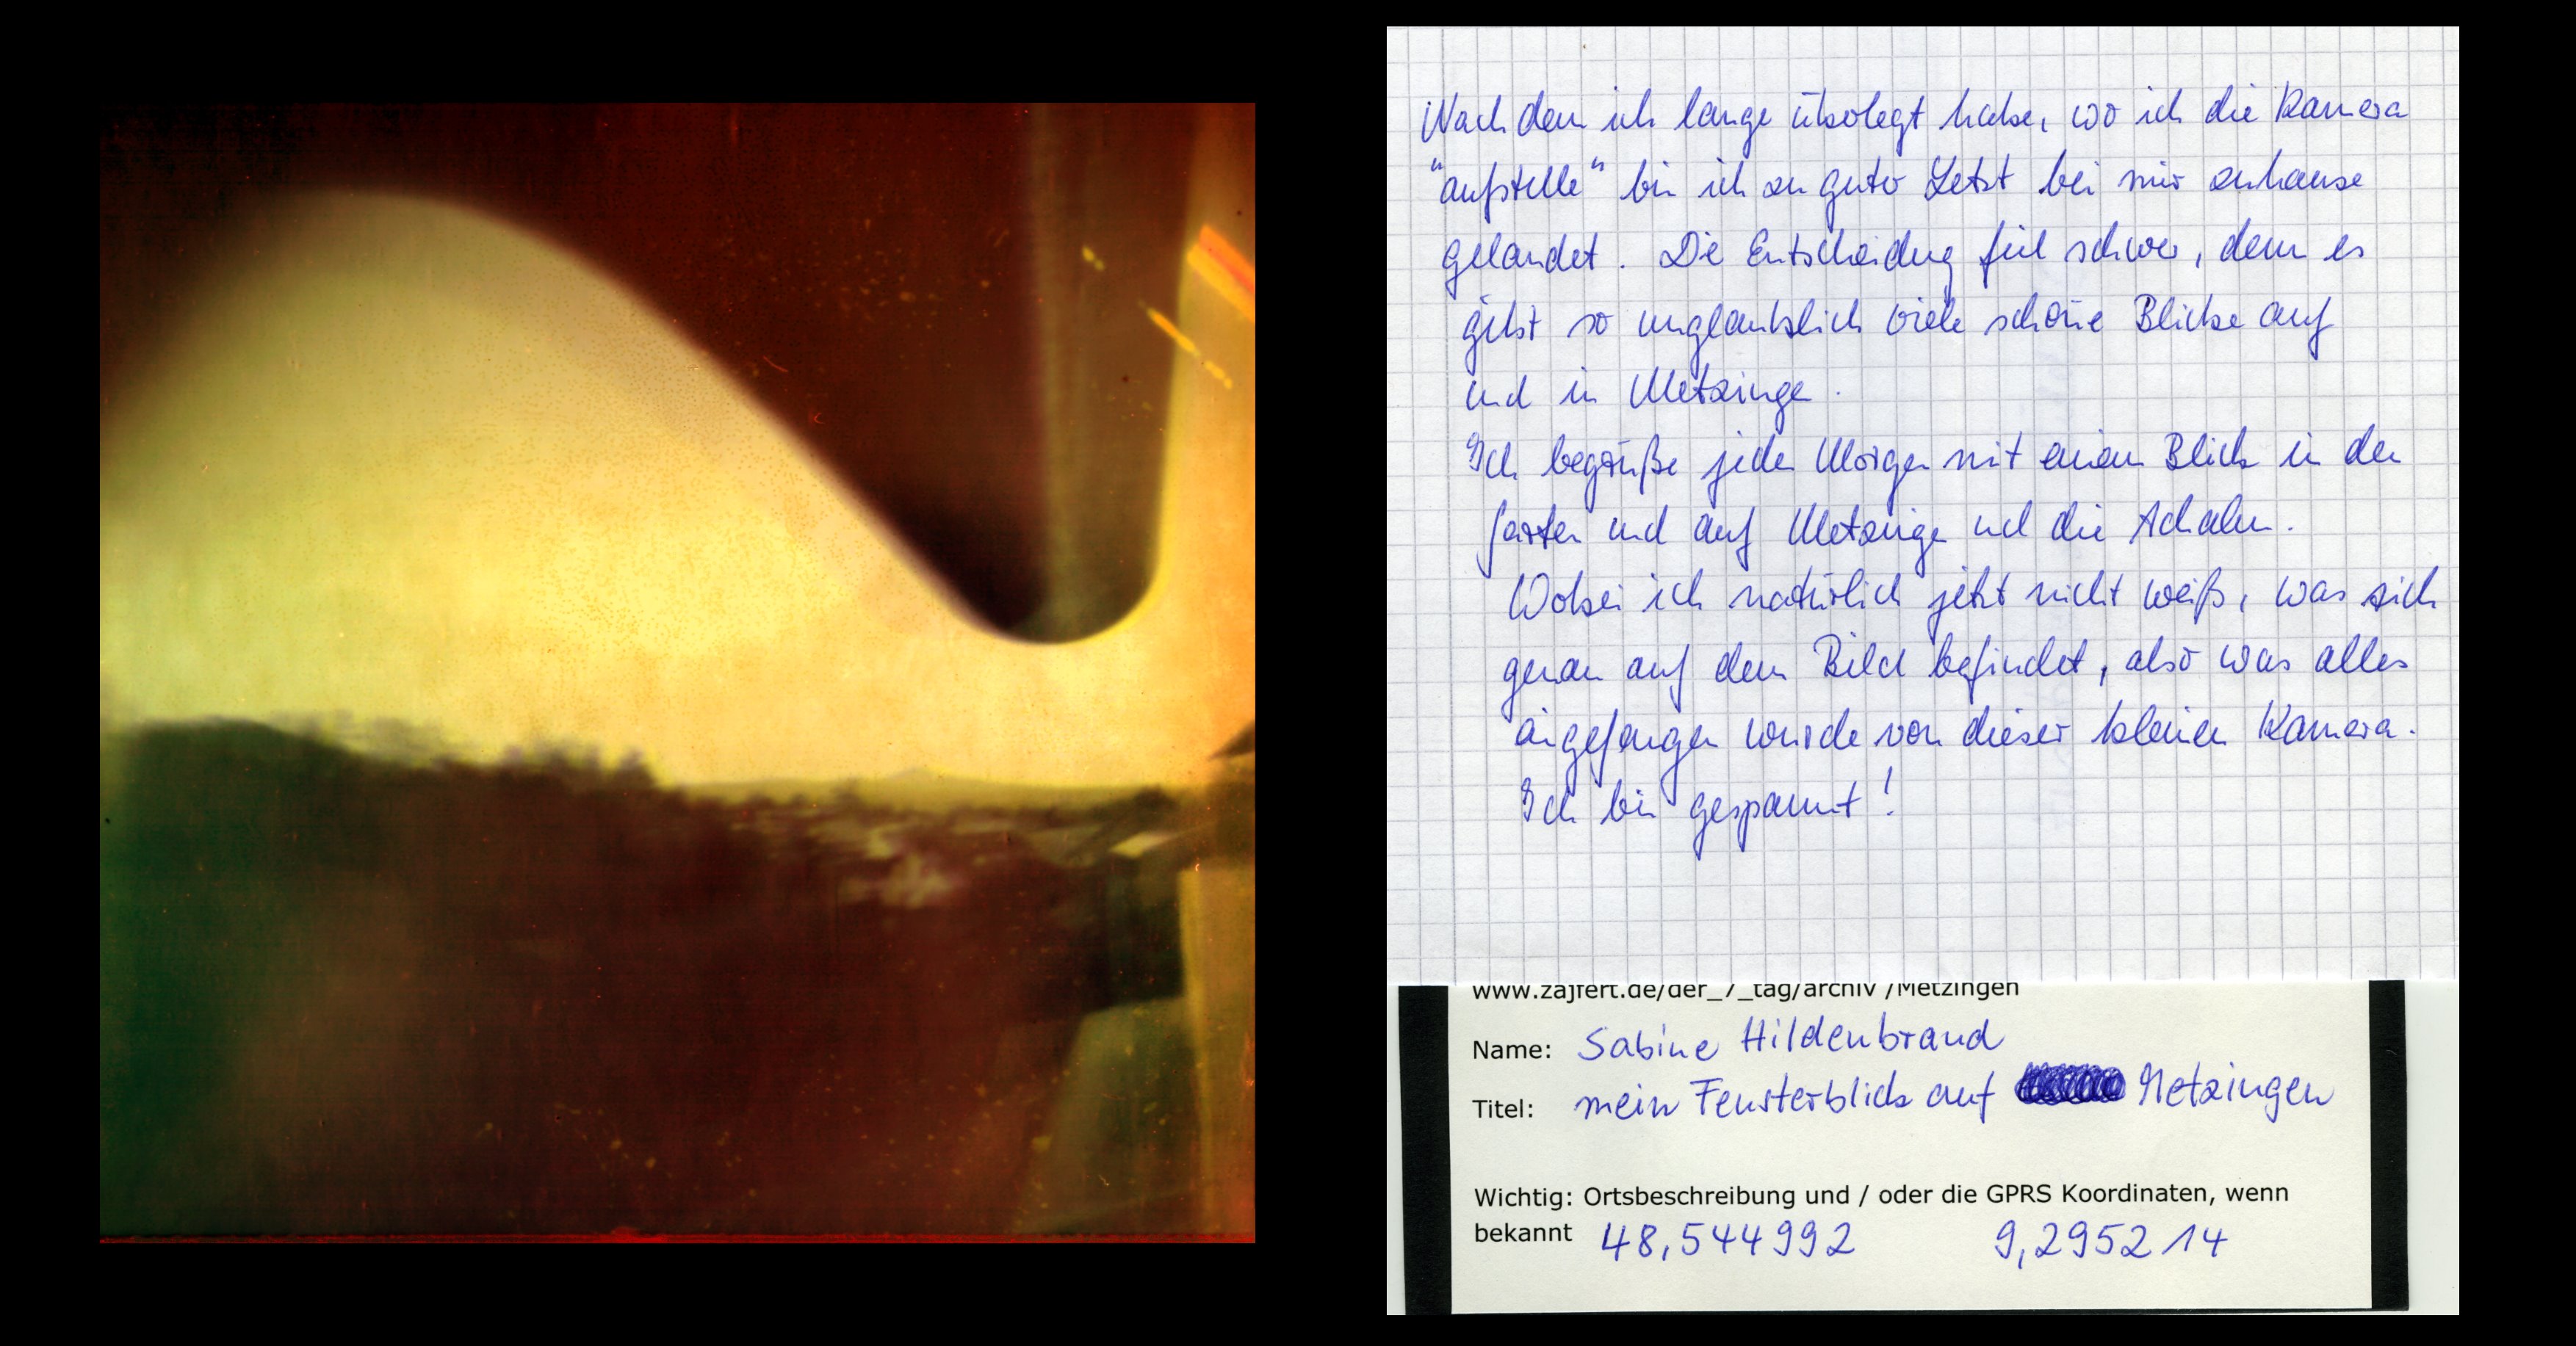 Nachdem ich lange überlegt habe, wo ich die Kamera
"aufstelle" bin ich zu guter Letzt bei mir zuhause
gelandet. Die Entscheidung fiel schwer, denn es
gibt so unglaublich viele schöne Blicke auf
und in Metzingen.
Ich begrüße jeden Morgen mit einem Blick in den
Garten und auf Metzingen und die Achalm.
Wobei ich natürlich jetzt nicht weiß, was sich
genau auf dem Bild befindet, also was alles
eingefangen wurde von dieser kleinen Kamera.
Ich bin gespannt!
www.zajfert.de/der_7_tag/archiv /Metzingen
Name: Sabine Hildenbrand
Titel: mein Fensterblick auf Metzingen
Wichtig: Ortsbeschreibung und / oder die GPRS Koordinaten, wenn
bekannt 48,544992 9,295214